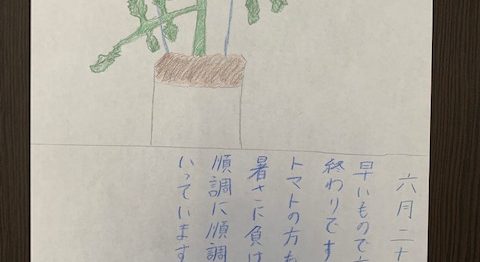 六月二十
早いもので
終わりです
トマトの方も
暑さに負け
順調に順調
いっています